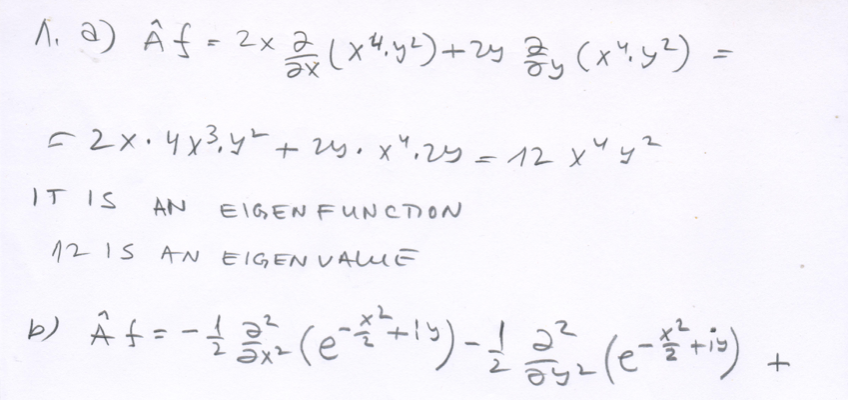 1. a) Â f = 2x ∂/∂x (x⁴·y²) + 2y ∂/∂y (x⁴·y²) =
= 2x · 4x³·y² + 2y · x⁴·2y = 12 x⁴ y²
IT IS AN EIGENFUNCTION
12 IS AN EIGENVALUE
b) Â f = -1/2 ∂²/∂x² (e^(-x²/2 + iy)) - 1/2 ∂²/∂y² (e^(-x²/2 + iy)) +